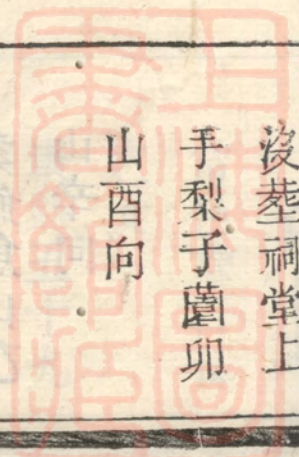 沒塟祠堂上
手梨子薗卯
山酉向